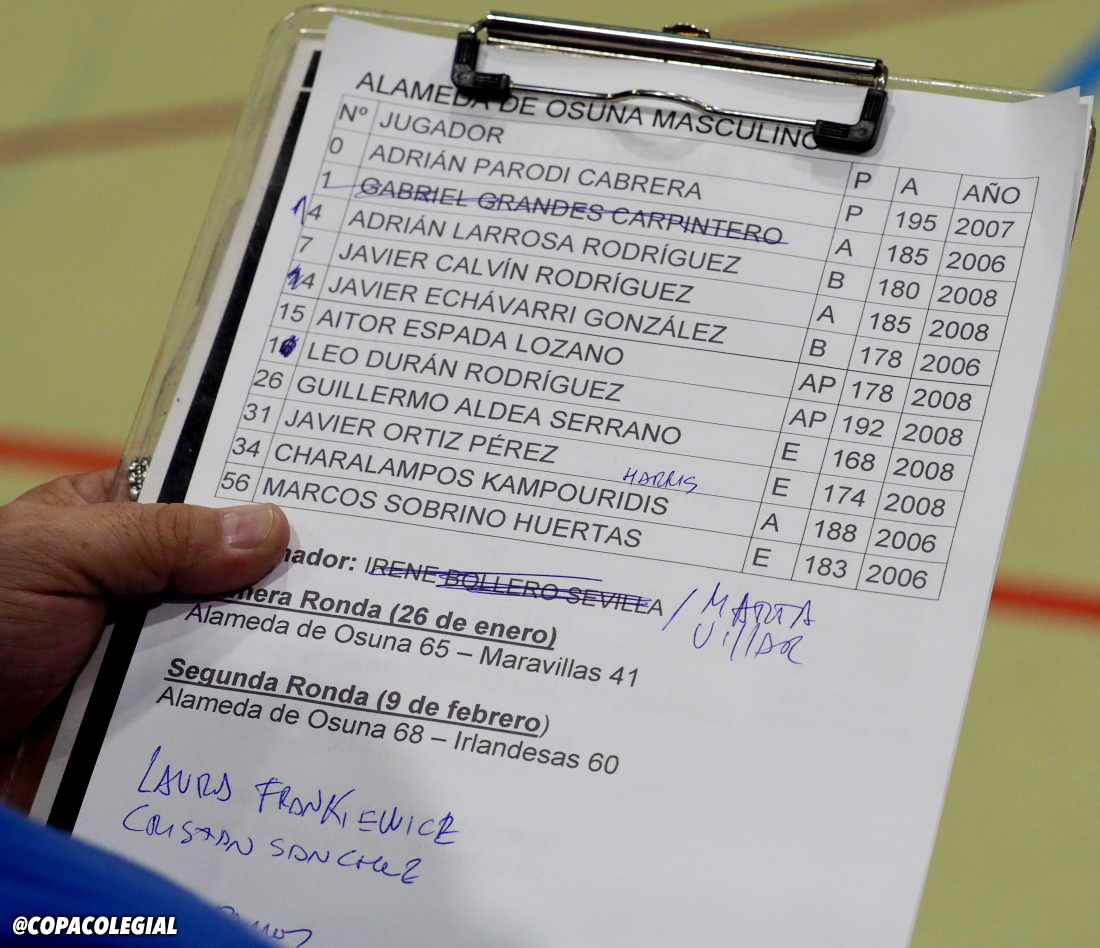 ALAMEDA DE OSUNA MASCULINO
Nº JUGADOR P A AÑO
0 ADRIÁN PARODI CABRERA P 195 2007
1 GABRIEL GRANDES CARPINTERO A 185 2006
14 ADRIÁN LARROSA RODRÍGUEZ B 180 2008
7 JAVIER CALVÍN RODRÍGUEZ A 185 2008
4 JAVIER ECHÁVARRI GONZÁLEZ B 178 2006
15 AITOR ESPADA LOZANO AP 178 2008
LEO DURÁN RODRÍGUEZ AP 192 2008
26 GUILLERMO ALDEA SERRANO E 168 2008
31 JAVIER ORTIZ PÉREZ E 174 2008
HARRIS
34 CHARALAMPOS KAMPOURIDIS A 188 2006
56 MARCOS SOBRINO HUERTAS E 183 2006
nador: IRENE BOLLERO SEVILLA / MARTA
VillAR
mera Ronda (26 de enero)
Alameda de Osuna 65 – Maravillas 41
Segunda Ronda (9 de febrero)
Alameda de Osuna 68 – Irlandesas 60
LAURA FRANKIEWICZ
SANCHEZ
@COPACOLEGIAL